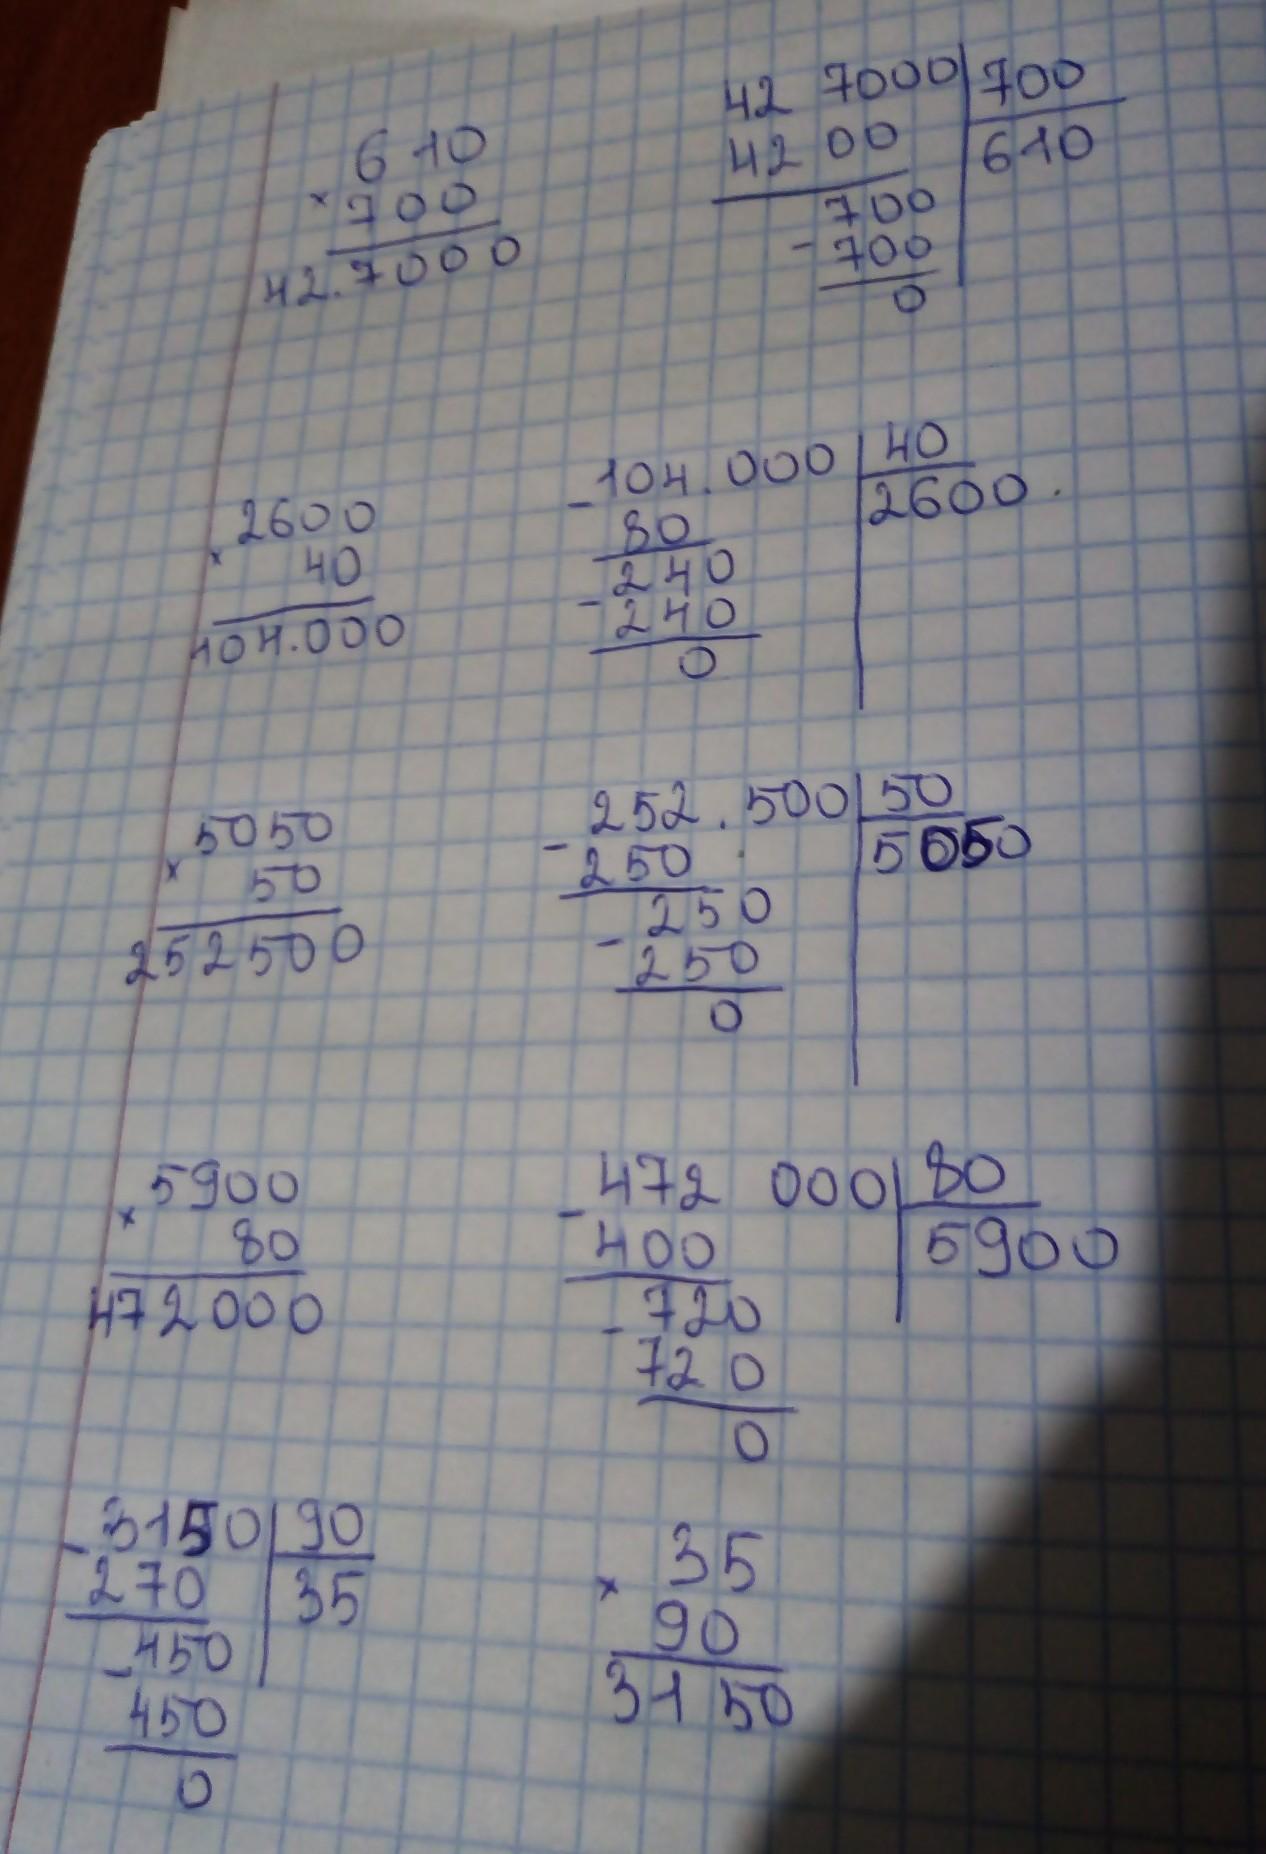 610
× 700
42.7000
42 7000 | 700
4200 | 610
700
- 700
0
2600
× 40
104.000
- 104.000 | 40
80 | 2600.
240
- 240
0
5050
× 50
252500
- 252.500 | 50
250 | 5050
- 250
250
0
5900
× 80
472000
- 472 000 | 80
400 | 5900
- 720
720
0
- 3150 | 90
270 | 35
- 450
450
0
35
× 90
3150